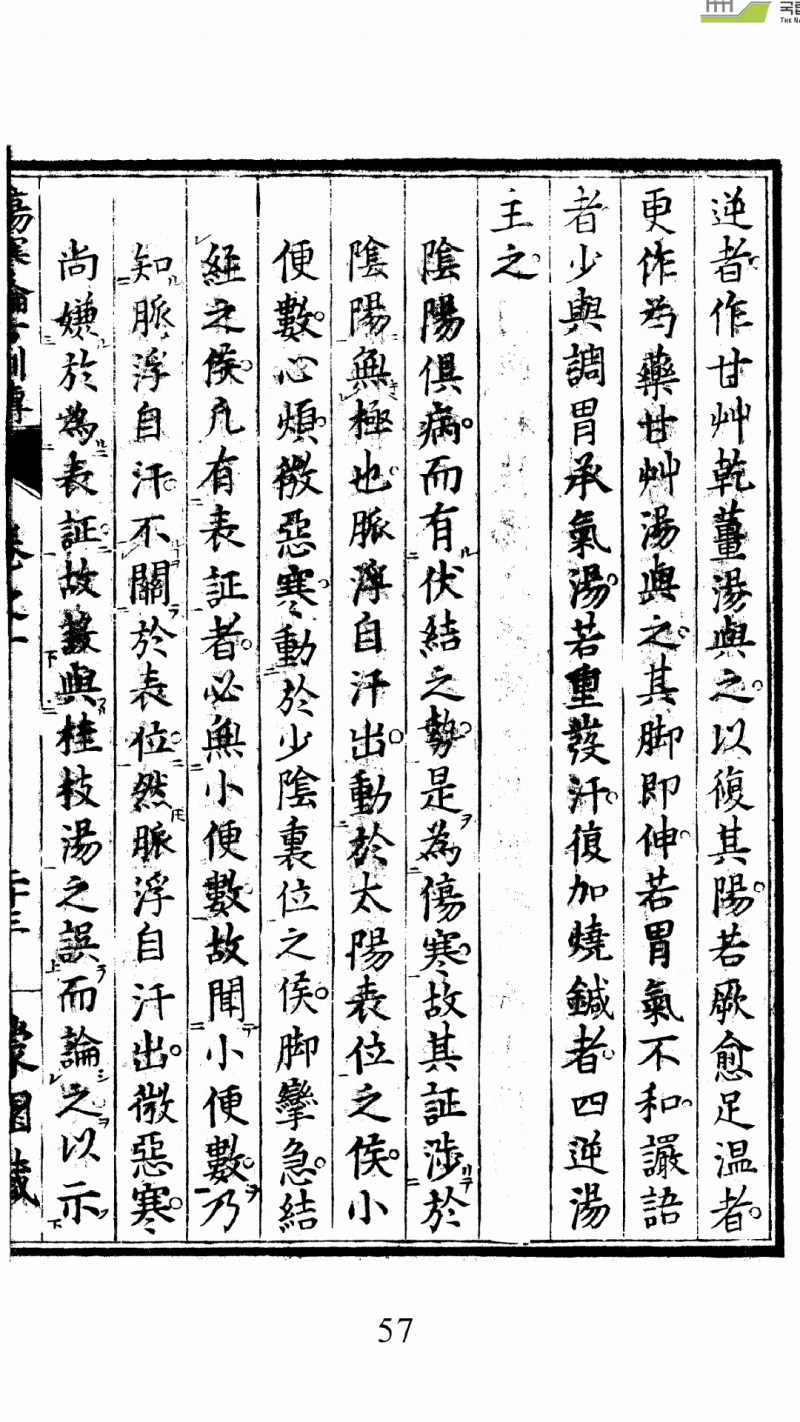 逆者作甘艸乾薑湯與之以復其陽若厥愈足温者
更作芍藥甘艸湯與之其脚即伸若胃氣不和讝語
者少與調胃承氣湯若重發汗復加燒鍼者四逆湯
主之
陰陽俱病而有伏結之勢是為傷寒故其証涉於
陰陽無極也脈浮自汗出動於太陽表位之候小
便數心煩微惡寒動於少陰裏位之候脚攣急結
經之候凡有表証者必無小便數故聞小便數乃
知脈浮自汗不關於表位然脈浮自汗出微惡寒
尚嫌於為表証故發與桂枝湯之誤而論之以示
二十三
57